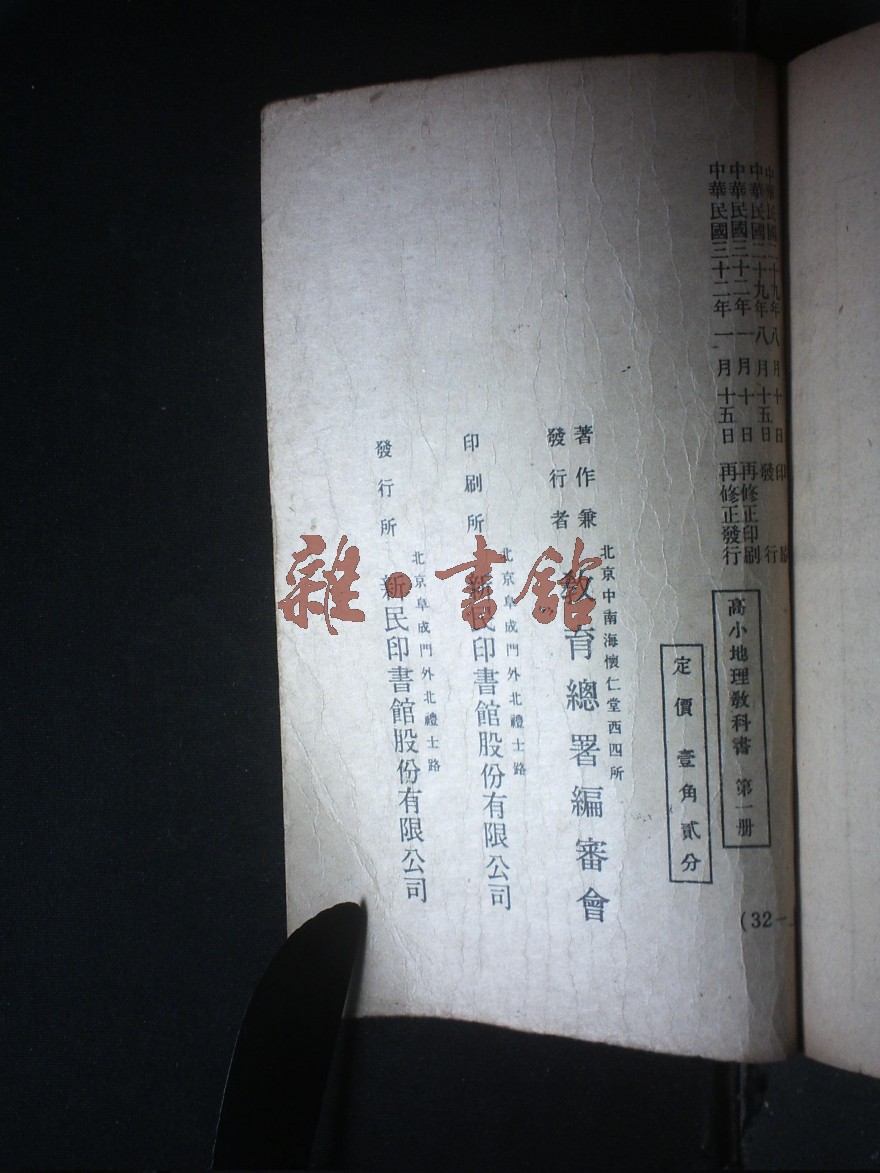 中華民國二十九年八月十日印刷
中華民國二十九年八月十五日發行
中華民國三十二年一月十日再修正印刷
中華民國三十二年一月十五日再修正發行
高小地理教科書 第一册
定價壹角貳分
(32-
著作兼
發行者
北京中南海懷仁堂西四所
教育總署編審會
印刷所
北京阜成門外北禮士路
新民印書館股份有限公司
發行所
北京阜成門外北禮士路
新民印書館股份有限公司
雜·書館